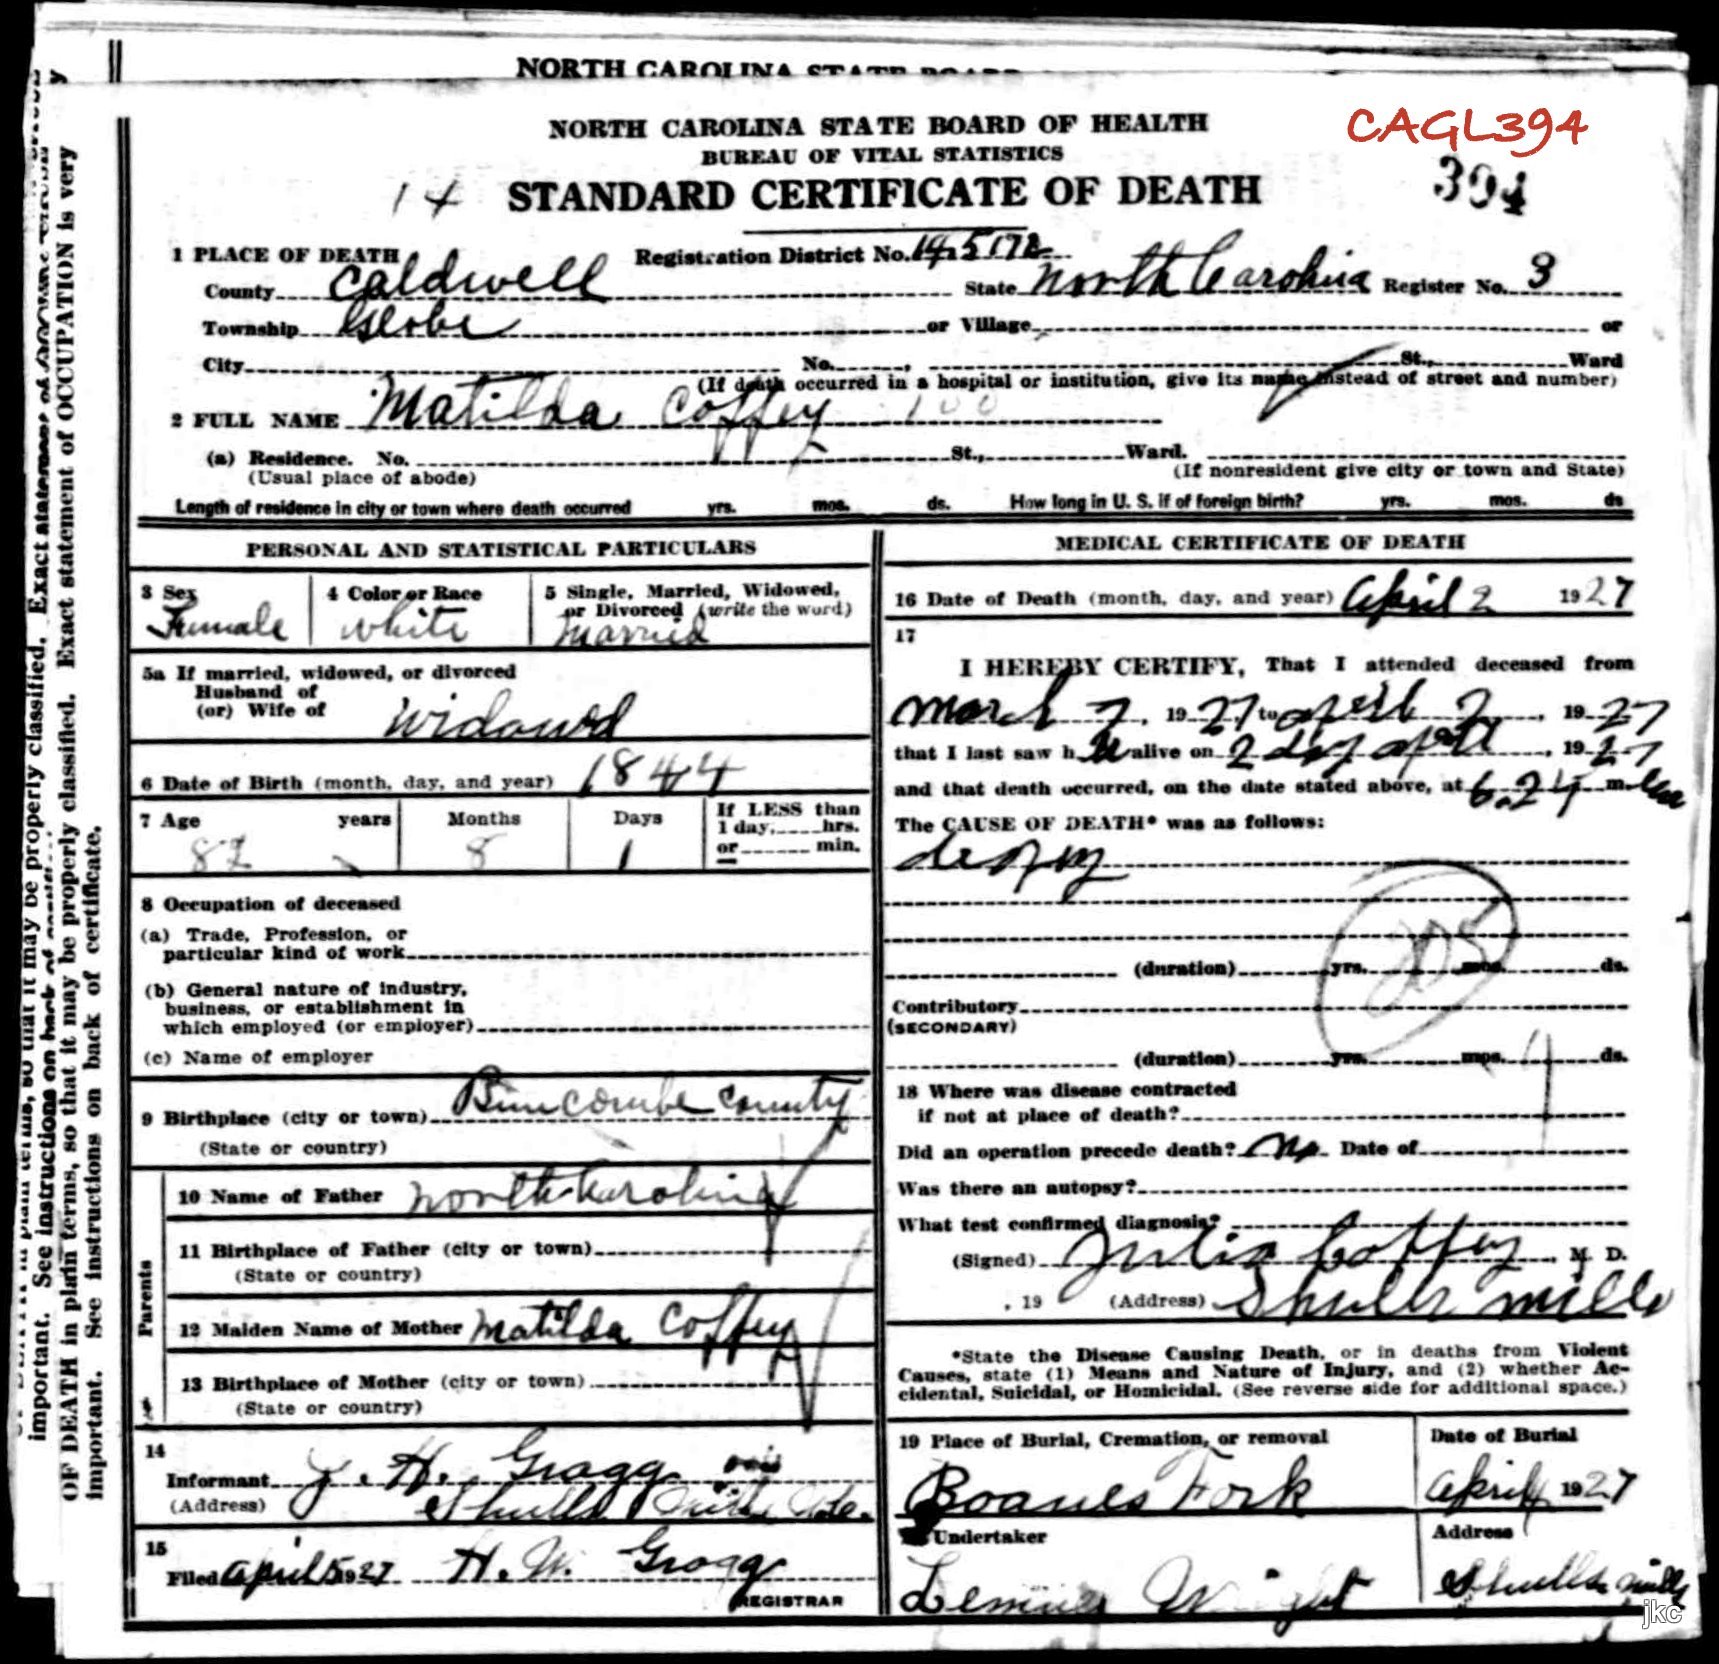 NORTH CAROLINA STATE BOARD
CAGL394
NORTH CAROLINA STATE BOARD OF HEALTH
BUREAU OF VITAL STATISTICS
14 STANDARD CERTIFICATE OF DEATH 394
1 PLACE OF DEATH Registration District No. 14.5172
County Caldwell State North Carolina Register No. 3
Township Globe or Village or
City No. , St., Ward
(If death occurred in a hospital or institution, give its name instead of street and number)
2 FULL NAME Matilda Coffey 100
(a) Residence. No. St., Ward.
(Usual place of abode) (If nonresident give city or town and State)
Length of residence in city or town where death occurred yrs. mos. ds. How long in U. S. if of foreign birth? yrs. mos. ds
PERSONAL AND STATISTICAL PARTICULARS
3 Sex 4 Color or Race 5 Single, Married, Widowed,
or Divorced (write the word)
Female white Married
5a If married, widowed, or divorced
Husband of
(or) Wife of Widowed
6 Date of Birth (month, day, and year) 1844
7 Age years Months Days If LESS than
1 day, hrs.
or min.
82 8 1
8 Occupation of deceased
(a) Trade, Profession, or
particular kind of work
(b) General nature of industry,
business, or establishment in
which employed (or employer)
(c) Name of employer
9 Birthplace (city or town) Buncombe county
(State or country)
Parents
10 Name of Father North Carolina
11 Birthplace of Father (city or town)
(State or country)
12 Maiden Name of Mother Matilda Coffey
13 Birthplace of Mother (city or town)
(State or country)
14
Informant J. H. Gragg
(Address) Shulls Mills N.C.
15
Filed April 5 1927 H. W. Gragg
REGISTRAR
MEDICAL CERTIFICATE OF DEATH
16 Date of Death (month, day, and year) April 2 1927
17
I HEREBY CERTIFY, That I attended deceased from
March 7, 1927, to april 2, 1927
that I last saw h er alive on 2 day april, 1927
and that death occurred, on the date stated above, at 6.24 m.
The CAUSE OF DEATH* was as follows:
dropsy
205
(duration) yrs. mos. ds.
Contributory
(SECONDARY)
(duration) yrs. mos. ds.
18 Where was disease contracted
if not at place of death?
Did an operation precede death? No Date of
Was there an autopsy?
What test confirmed diagnosis?
(Signed) Julia Coffey, M. D.
, 19 (Address) Shulls mills
*State the Disease Causing Death, or in deaths from Violent
Causes, state (1) Means and Nature of Injury, and (2) whether Ac-
cidental, Suicidal, or Homicidal. (See reverse side for additional space.)
19 Place of Burial, Cremation, or removal Date of Burial
Boanes Fork April 4 1927
Undertaker Address
Wright Shulls mills
important. See instructions on back of
properly classified. Exact statement of
OF DEATH in plain terms, so that it may be properly classified. Exact statement of OCCUPATION is very
important. See instructions on back of certificate.
jkc